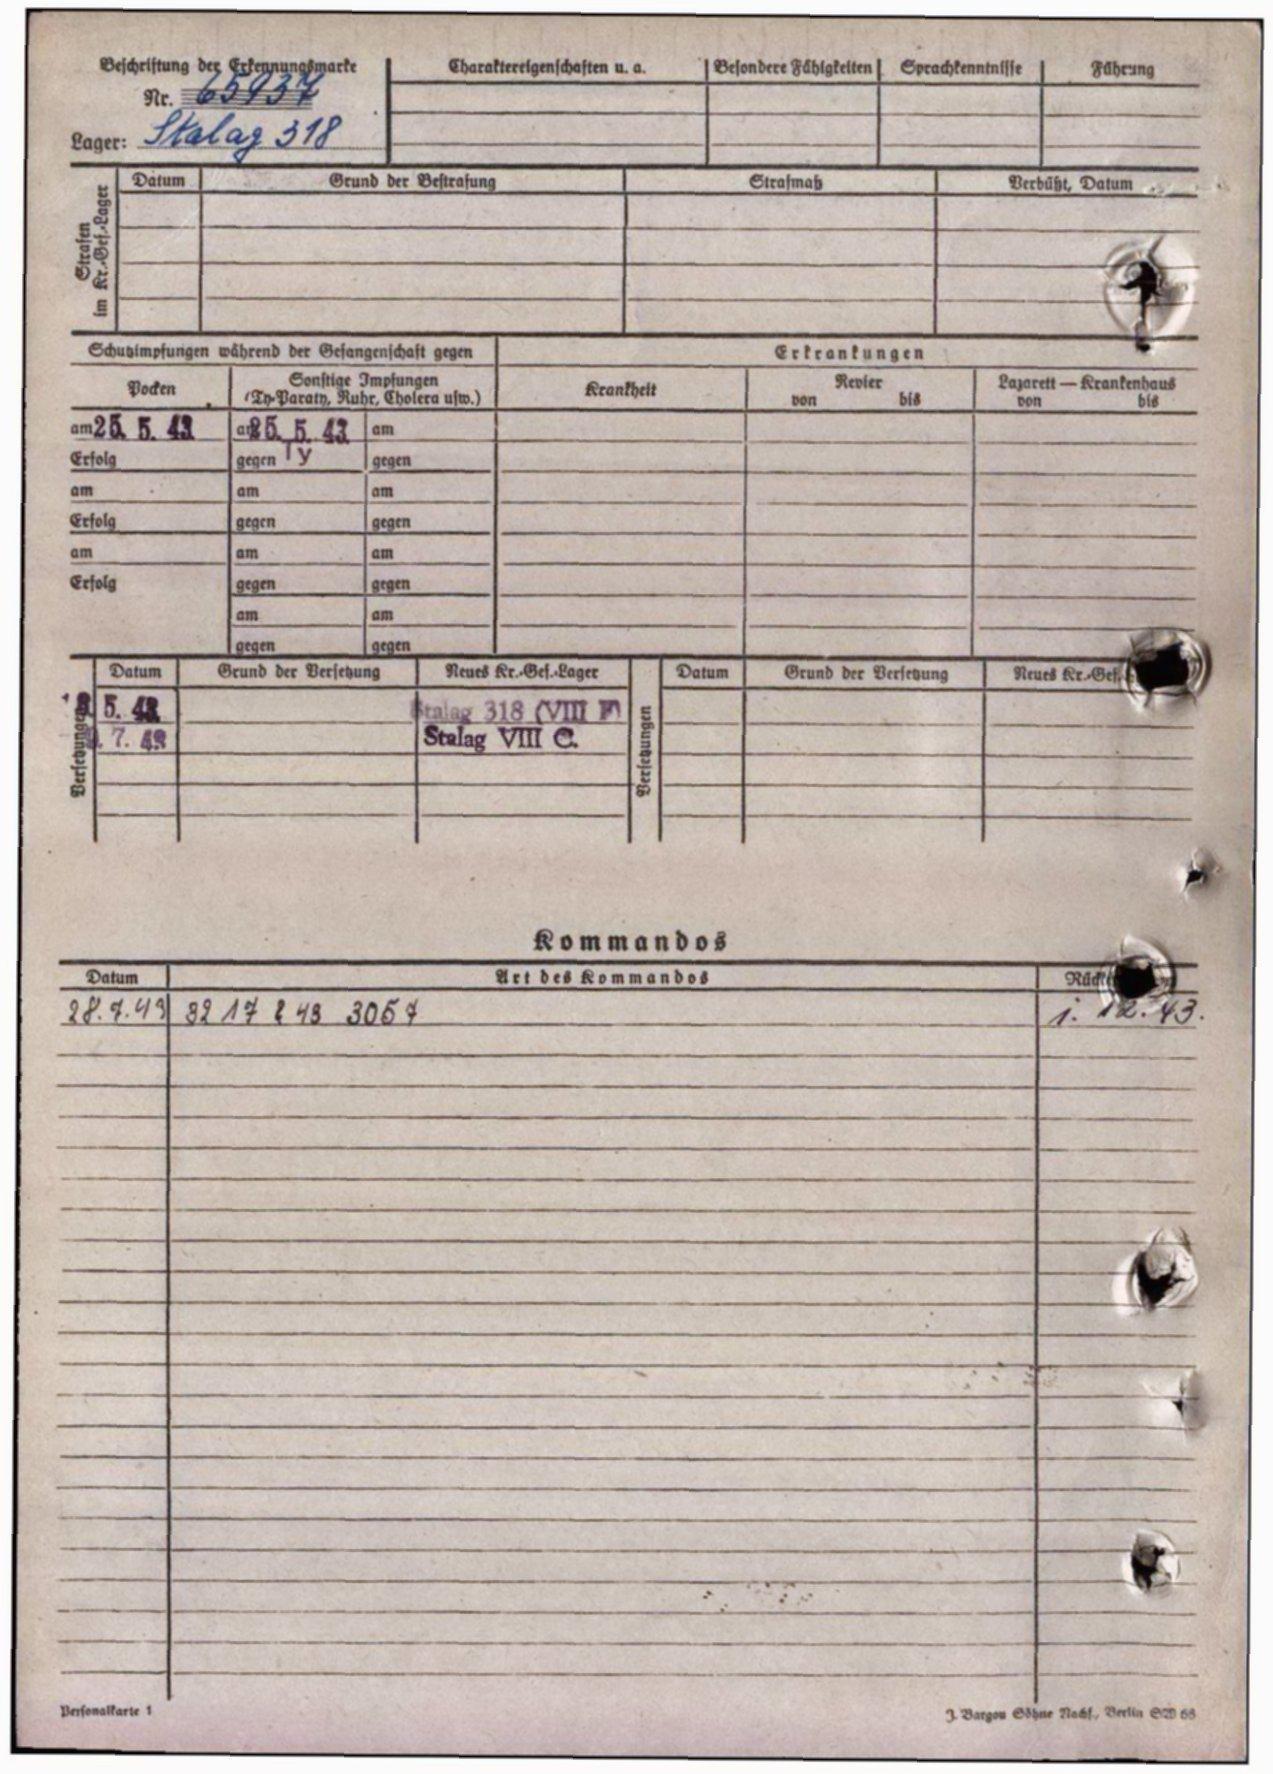 Beschriftung der Erkennungsmarke
Nr. 65937
Lager: Stalag 318
Charaktereigenschaften u. a.
Besondere Fähigkeiten
Sprachkenntnisse
Führung
Strafen im Kr.-Gef.-Lager
Datum
Grund der Bestrafung
Strafmaß
Verbüßt, Datum
Schutzimpfungen während der Gefangenschaft gegen
Erkrankungen
Pocken
Sonstige Impfungen
(Ty-Paraty, Ruhr, Cholera usw.)
Krankheit
Revier
von bis
Lazarett — Krankenhaus
von bis
am 25. 5. 43 am 25. 5. 43 am
Erfolg gegen Ty gegen
am am am
Erfolg gegen gegen
am am am
Erfolg gegen gegen
am am
gegen gegen
Versetzungen
Datum Grund der Versetzung Neues Kr.-Gef.-Lager
5. 43 Stalag 318 (VIII F)
7. 43 Stalag VIII C.
Versetzungen
Datum Grund der Versetzung Neues Kr.-Gef.
Kommandos
Datum Art des Kommandos
28.7.43 3057 43.
Personalkarte 1
J. Bargou Söhne Nachf., Berlin SW 68